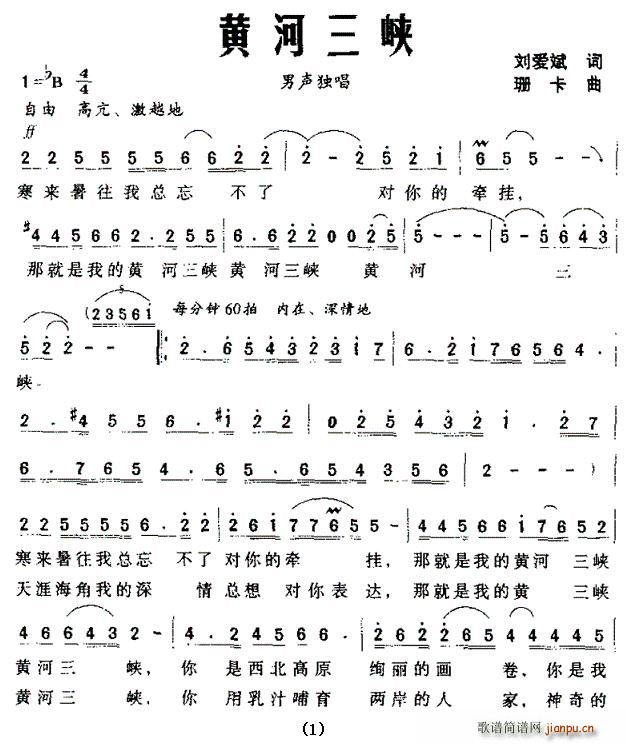 黄河三峡
刘爱斌 词
1=♭B 4/4 男声独唱 珊卡 曲
自由 高亢、激越地
ff
2 2 5 5 5 5 6 6 2 2 | 2 - 2 5 2 1 | 6 5 5 - -
寒来暑往我总忘 不了 对你的牵挂,
4 4 5 6 6 2 . 2 5 5 | 6 . 6 2 2 0 0 2 5 | 5 - - - | 5 - 5 6 4 3
那就是我的黄 河三峡 黄 河三峡 黄 河 三
5
(2 3 5 6 1 每分钟60拍 内在、深情地
5 2 2 - - 2 . 6 5 4 3 2 3 1 7 | 6 . 2 1 7 6 5 6 4 .
峡
2 . #4 5 5 6 . #1 2 2 | 0 2 5 4 3 2 1 . 2 7
6 . 7 6 5 4 . 6 5 . 6 5 4 3 5 6 | 2 - - - )
2 2 5 5 5 5 6 . 2 2 2 | 2 6 1 7 7 6 5 5 - | 4 4 5 6 6 1 7 6 5 2
寒来暑往我总忘 不了 对你的牵 挂, 那就是我的黄河 三峡
天涯海角我的深 情总想 对你表 达, 那就是我的黄 三峡
4 6 6 4 3 2 - | 4 . 2 4 5 5 6 5 | 2 6 2 2 6 5 | 4 4 4 4 5
黄河三 峡, 你 是西北高原 绚丽的画 卷, 你是我
黄河三 峡, 你 用乳汁哺育 两岸的人 家, 神奇的
(1)
歌谱简谱网
jianpu.cn